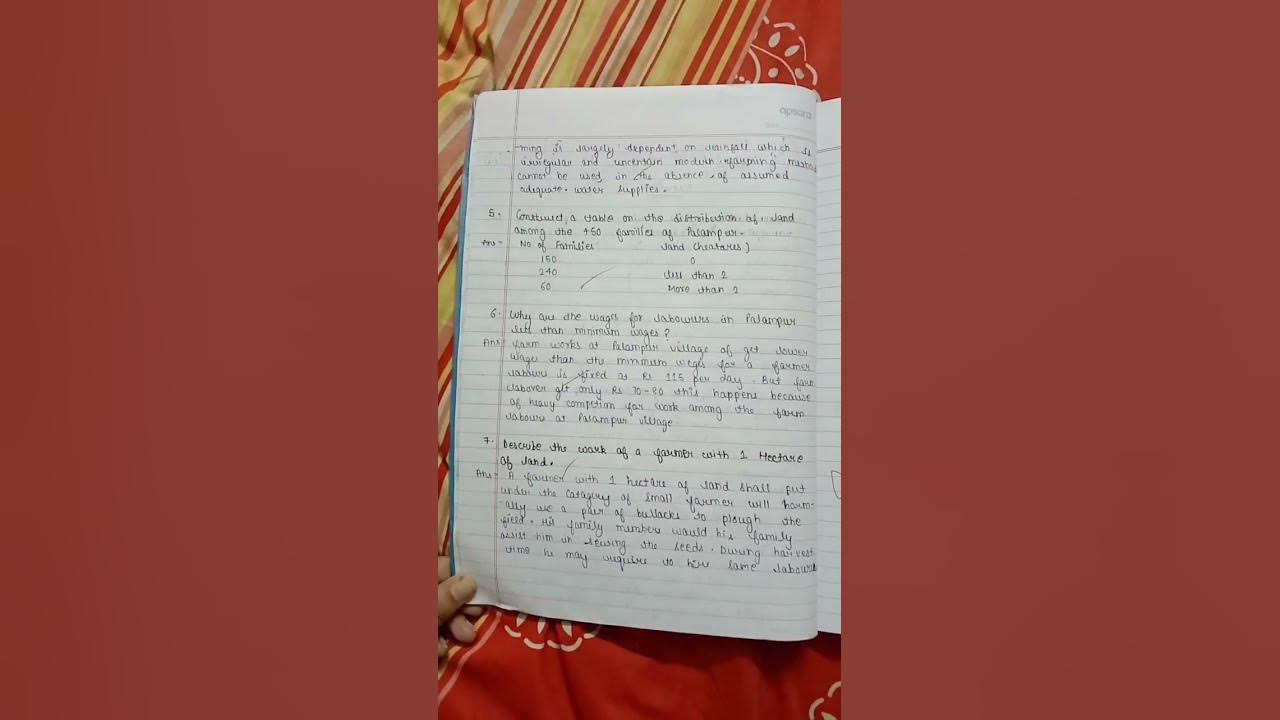 apsara
-ming is largely dependent on rainfall which is
irregular and uncertain modern farming method
cannot be used in the absence of assumed
adequate. water supplies.
5. Construct a table on the distribution of land
among the 450 families of Palampur-
Ans- No of Families land (heatares)
150 0
240 less than 2
60 More than 2
6. Why are the wages for labours in Palampur
less than minimum wages?
Ans farm works at Palampur village of get lower
wages than the minimum weges for a farmer
labour is fixed at Rs 115 per day. But farm
labover get only Rs 70-80 this happens because
of heavy competion for work among the farm
labours at Palampur village.
7. Describe the work of a farmer with 1 Hectare
of land.
Ans- A farmer with 1 hectare of land shall put
under the catagery of small farmer will horm-
-ally use a pair of bullacks to plough the
field. His family members would his family
assist him in sewing the seeds. During harvest
time he may require to hire same labours